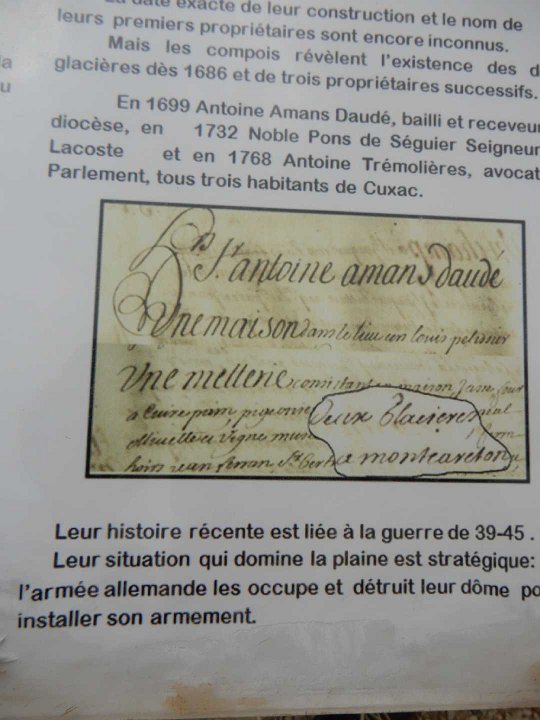 La date exacte de leur construction et le nom de
leurs premiers propriétaires sont encore inconnus.
Mais les compois révèlent l'existence des d
glacières dès 1686 et de trois propriétaires successifs.
En 1699 Antoine Amans Daudé, bailli et receveur
diocèse, en 1732 Noble Pons de Séguier Seigneur
Lacoste et en 1768 Antoine Trémolières, avocat
Parlement, tous trois habitants de Cuxac.
Sr. antoine amans daude
Une maison dans le lieu
Une metterie
a cuire pain pigeonnie deux Glacieres
a montcareton
Leur histoire récente est liée à la guerre de 39-45 .
Leur situation qui domine la plaine est stratégique:
l'armée allemande les occupe et détruit leur dôme po
installer son armement.